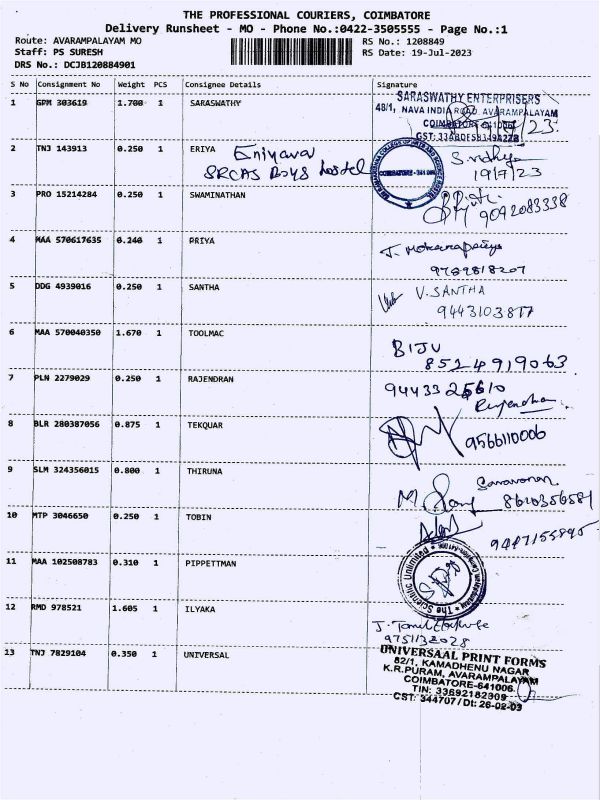 THE PROFESSIONAL COURIERS, COIMBATORE
Delivery Runsheet - MO - Phone No.:0422-3505555 - Page No.:1
Route: AVARAMPALAYAM MO RS No.: 1208849
Staff: PS SURESH RS Date: 19-Jul-2023
DRS No.: DCJB120884901
S No Consignment No Weight PCS Consignee Details Signature
1 GPM 303619 1.700 1 SARASWATHY
SARASWATHY ENTERPRISERS
48/1, NAVA INDIA ROAD, AVARAMPALAYAM
COIMBATORE
GST:
2 TNJ 143913 0.250 1 ERIYA Eniyava
SRCAS Boys hostel
COIMBATORE
19/7/23
3 PRO 15214284 0.250 1 SWAMINATHAN
9092083338
4 MAA 570617635 0.240 1 PRIYA
9789818207
5 DDG 4939016 0.250 1 SANTHA V. SANTHA
9443103817
6 MAA 570040350 1.670 1 TOOLMAC BIJU
8524919063
7 PLN 2279029 0.250 1 RAJENDRAN
Rajendran
8 BLR 280387056 0.875 1 TEKQUAR 9566110006
9 SLM 324356015 0.800 1 THIRUNA Saravanan
10 MTP 3046650 0.250 1 TOBIN
11 MAA 102508783 0.310 1 PIPPETTMAN The Scientific Unlimited
12 RMD 978521 1.605 1 ILYAKA
13 TNJ 7829104 0.350 1 UNIVERSAL
UNIVERSAAL PRINT FORMS
82/1, KAMADHENU NAGAR
K.R.PURAM, AVARAMPALAYAM
COIMBATORE-641006
TIN: 33692182309
CST: 344707 / Dt: 26-02-03